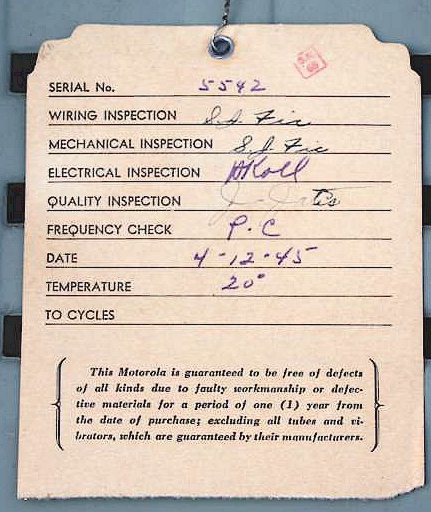 SERIAL No. 5542
WIRING INSPECTION S.J. Fic
MECHANICAL INSPECTION S.J. Fic
ELECTRICAL INSPECTION
QUALITY INSPECTION
FREQUENCY CHECK P.C
DATE 4-12-45
TEMPERATURE 20°
TO CYCLES
This Motorola is guaranteed to be free of defects
of all kinds due to faulty workmanship or defec-
tive materials for a period of one (1) year from
the date of purchase; excluding all tubes and vi-
brators, which are guaranteed by their manufacturers.